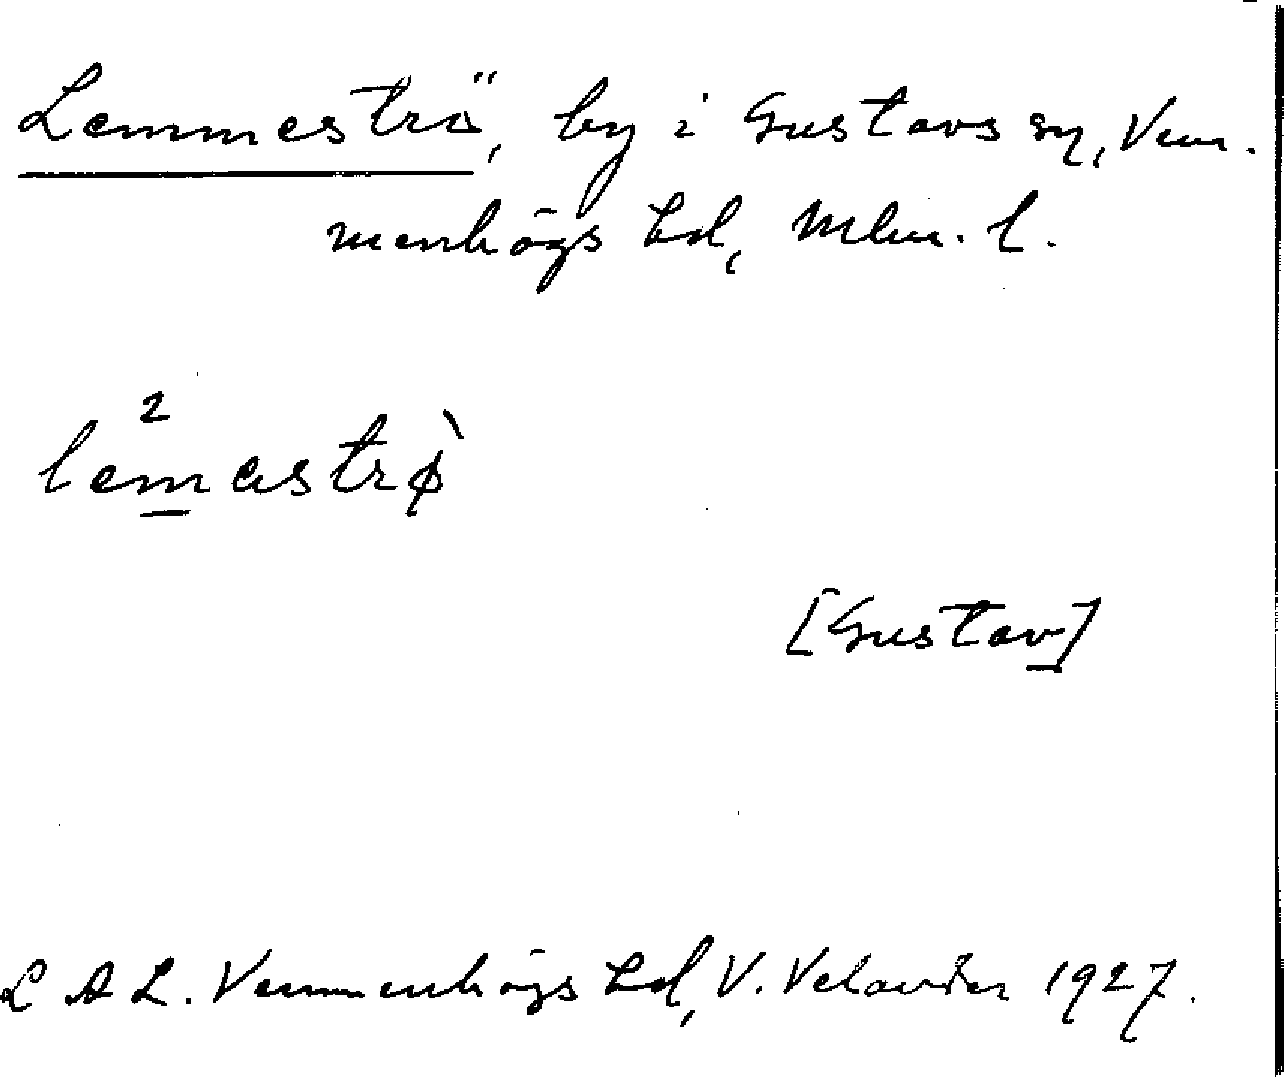 Lemmeströ, by i Gustavs sn, Vem-
menhögs hd, Mlm. l.
lemɑstrø̀
2
[Gustav]
L A L. Vemmenhögs hd, V. Velander 1927.